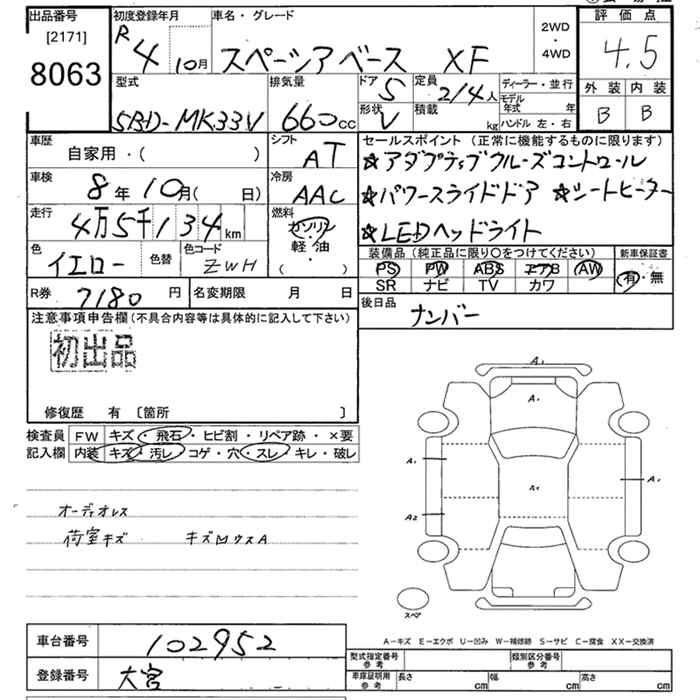 出品番号 初度登録年月 車名・グレード 2WD・4WD 評価点
[2171] 8063 R4 10月 スペーシアベース XF 4.5
型式 排気量 ドア 5 定員 2/4人 ディーラー・並行 外装 内装
5BD-MK33V 660cc 形状 V 積載 kg モデル年式 年 ハンドル 左・右 B B
車歴 自家用・( ) シフト AT セールスポイント (正常に機能するものに限ります)
車検 8年10月( 日) 冷房 AAC ☆アダプティブクルーズコントロール
走行 4万5千134km 燃料 ガソリン・軽油 ( ) ☆パワースライドドア ☆シートヒーター
☆LEDヘッドライト
色 イエロー 色替 色コード ZWH
装備品 (純正品に限り○をつけてください) 新車保証書
PS PW ABS エアB AW 有・無
SR ナビ TV カワ
R券 7180円 名変期限 月 日 後日品 ナンバー
注意事項申告欄 (不具合内容等は具体的に記入して下さい)
初出品
修復歴 有 〔箇所 〕
検査員 FW キズ・飛石・ヒビ割・リペア跡・×要
記入欄 内装 キズ・汚レ・コゲ・穴・スレ・キレ・破レ
オーディオレス
荷室キズ キズMウスA
A1
A1
A1 A1 A1
A2
スペア
A-キズ E-エクボ U-凹み W-補修跡 S-サビ C-腐食 XX-交換済
車台番号 102952 型式指定番号 参考 類別区分番号 参考
登録番号 大宮 車庫証明用 参考 長さ cm 幅 cm 高さ cm